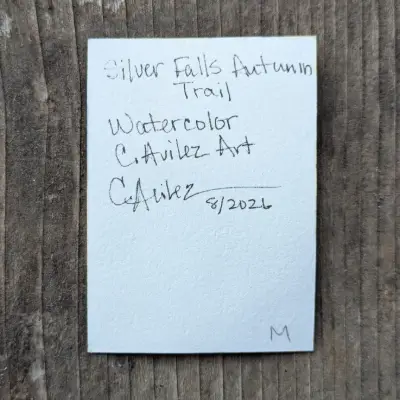 Silver Falls Autumn
Trail
Watercolor
C. Avilez Art
C. Avilez
8/2026
M